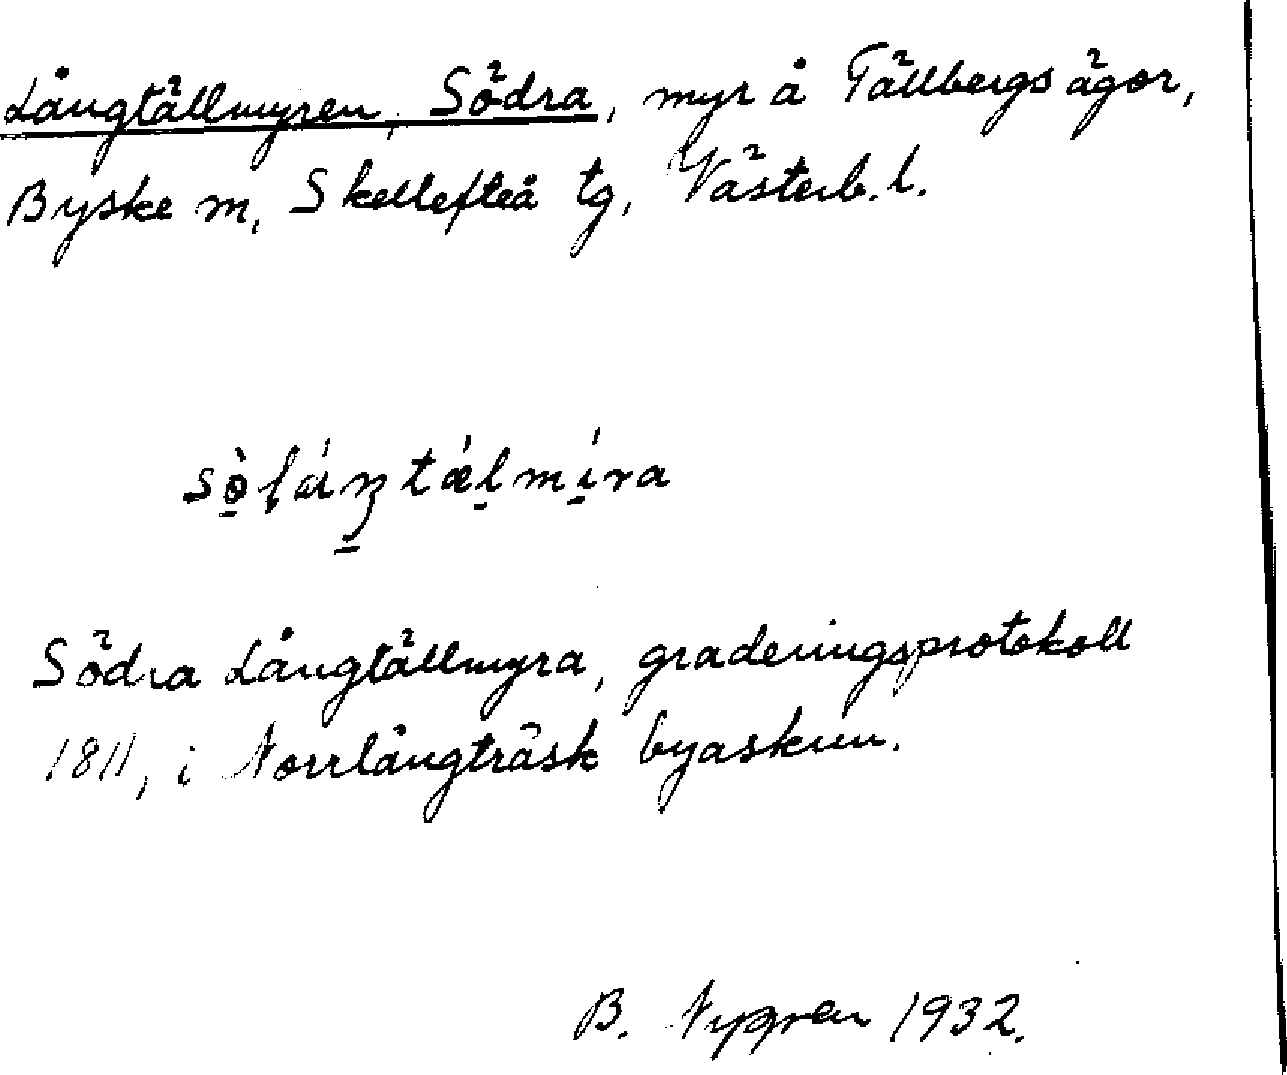 Långtällmyren, Södra, myr å Tällbergs ägor,
Byske m, Skellefteå tg, Västerb. l.
sò̠ḷáŋ̠tǽl̠mí̠ra
Södra Långtällmyra, graderingsprotokoll
1811, i Norrlångträsk byaskrin.
B. Nygren 1932.